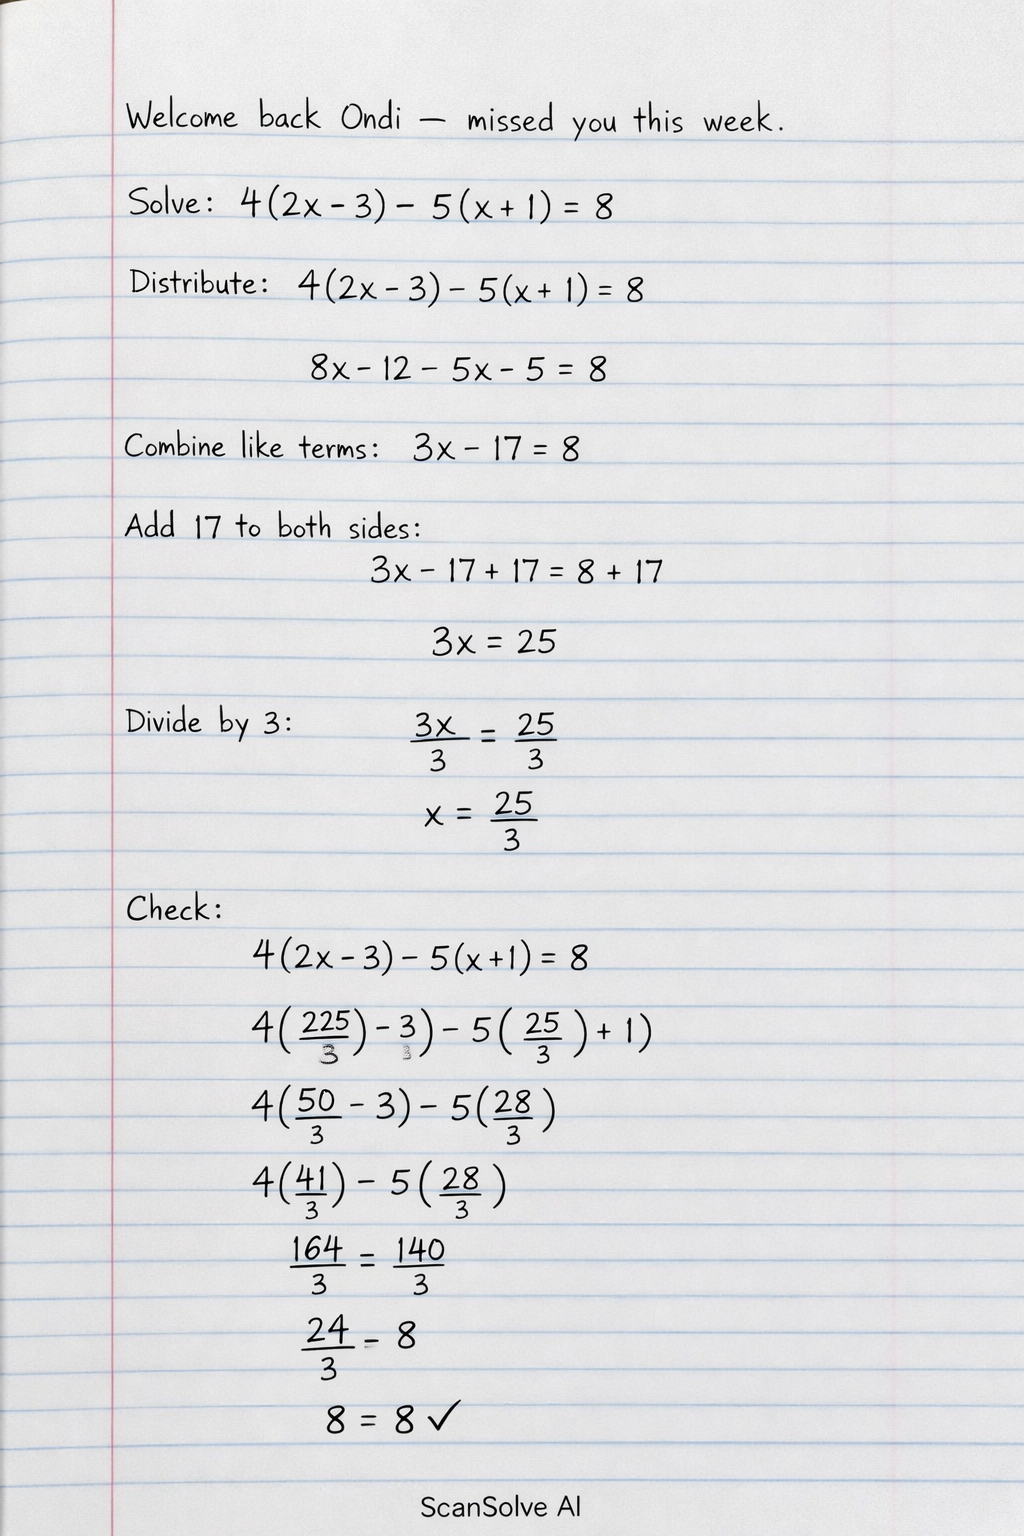 Welcome back Ondi — missed you this week.
Solve: 4(2x - 3) - 5(x + 1) = 8
Distribute: 4(2x - 3) - 5(x + 1) = 8
8x - 12 - 5x - 5 = 8
Combine like terms: 3x - 17 = 8
Add 17 to both sides:
3x - 17 + 17 = 8 + 17
3x = 25
Divide by 3: 3x/3 = 25/3
x = 25/3
Check:
4(2x - 3) - 5(x + 1) = 8
4(225/3) - 3) - 5(25/3) + 1)
4(50/3 - 3) - 5(28/3)
4(41/3) - 5(28/3)
164/3 = 140/3
24/3 - 8
8 = 8 ✓
ScanSolve AI